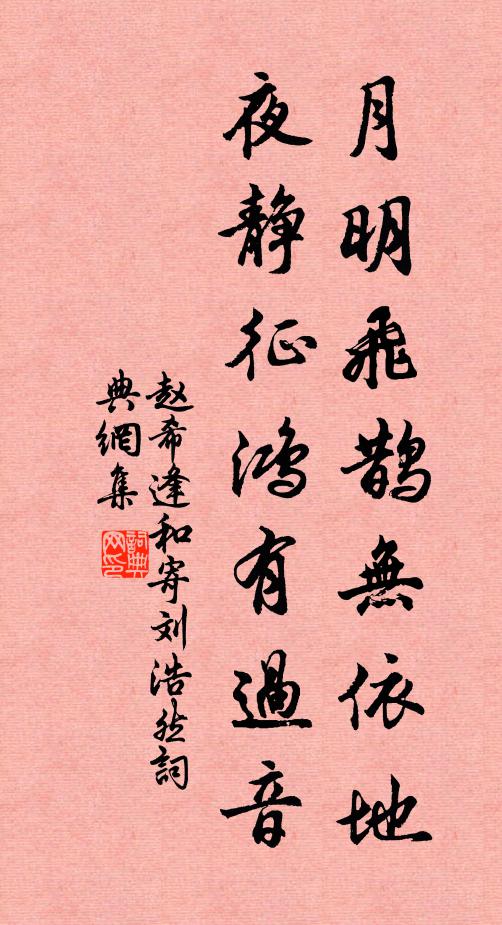 月明飛鵲無依地
夜静征鸿有過音
赵希逢和寄刘浩然詞
典網集
詞典
网印